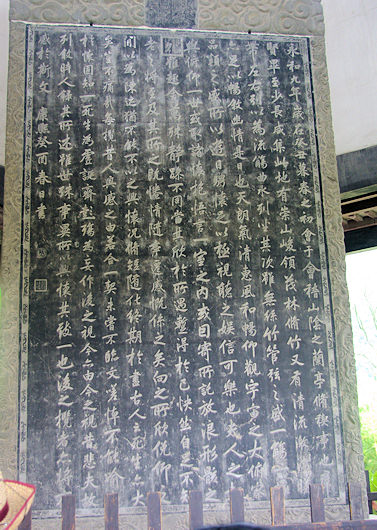 永和九年歲在癸丑暮春之初會于會稽山陰之蘭亭脩稧事也
賢畢至少長咸集此地有崇山峻領茂林脩竹又有清流激湍
帶左右引以為流觴曲水列坐其次雖無絲竹管弦之盛一觴
足以暢敘幽情是日也天朗氣清惠風和暢仰觀宇宙之大俯
品類之盛所以遊目騁懷足以極視聽之娛信可樂也夫人之
與俯仰一世或取諸懷抱悟言一室之內或因寄所託放浪形骸之
雖趣舍萬殊靜躁不同當其欣於所遇蹔得於己快然自足不
老之將至及其所之既惓情隨事遷感慨係之矣向之所欣俛仰
間以為陳迹猶不能不以之興懷況脩短隨化終期於盡古人云死生亦大
矣豈不痛哉每攬昔人興感之由若合一契未嘗不臨文嗟悼不能喻
於懷固知一死生為虛誕齊彭殤為妄作後之視今亦由今之視昔悲夫故
列敘時人錄其所述雖世殊事異所以興懷其致一也後之攬者亦將
感於斯文 康熙癸酉春日書